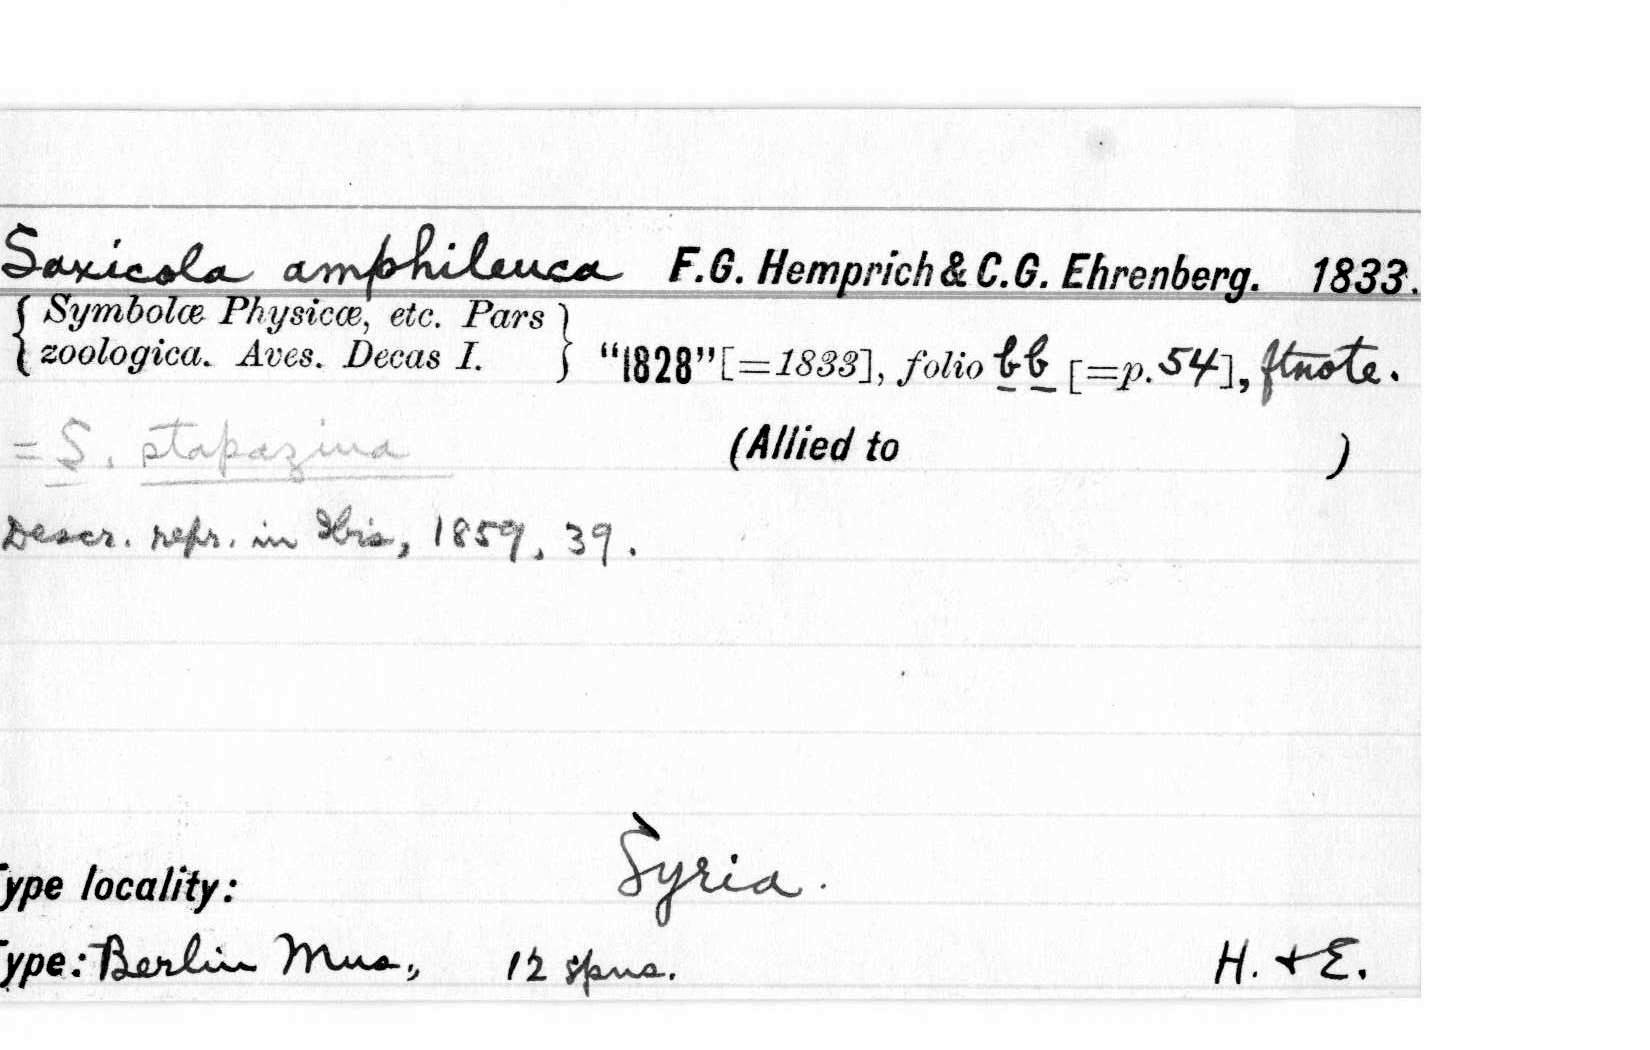 Saxicola amphileuca F.G. Hemprich & C.G. Ehrenberg. 1833.
{Symbolæ Physicæ, etc. Pars
zoologica. Aves. Decas I.} "1828" [=1833], folio bb [=p. 54], ftnote.
= S. stapazina (Allied to )
Descr. repr. in Ibis, 1859, 39.
ype locality: Syria.
ype: Berlin Mus., 12 spns. H. & E.